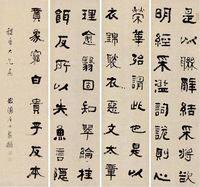 是以聯辭結采將欲
明經采濫辭詭則心
榮華殆謂此也是以
衣錦褧衣惡文太章
理愈翳固知翠綸桂
餌反所以失魚言隱
賁象窮白貴乎反本